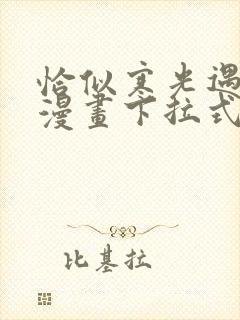 恰似寒光遇
漫畫下拉式
比基拉